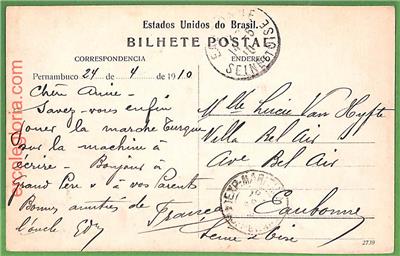 Estados Unidos do Brasil.
BILHETE POSTAL
CORRESPONDENCIA
ENDEREÇO
Pernambuco 24 de 4 de 1910
Chère Amie -
Savez-vous enfin
jouer la marche Turque
sur la machine à
écrire - Bonjour à
grand Père & à vos Parents
Bonnes amitiés de
l'oncle
Mlle Lucie Van Hyfte
Villa Bel Air
Ave Bel Air
Eaubonne
Seine & Oise
France
SEINE ET OISE
2739
ercolegloria.com